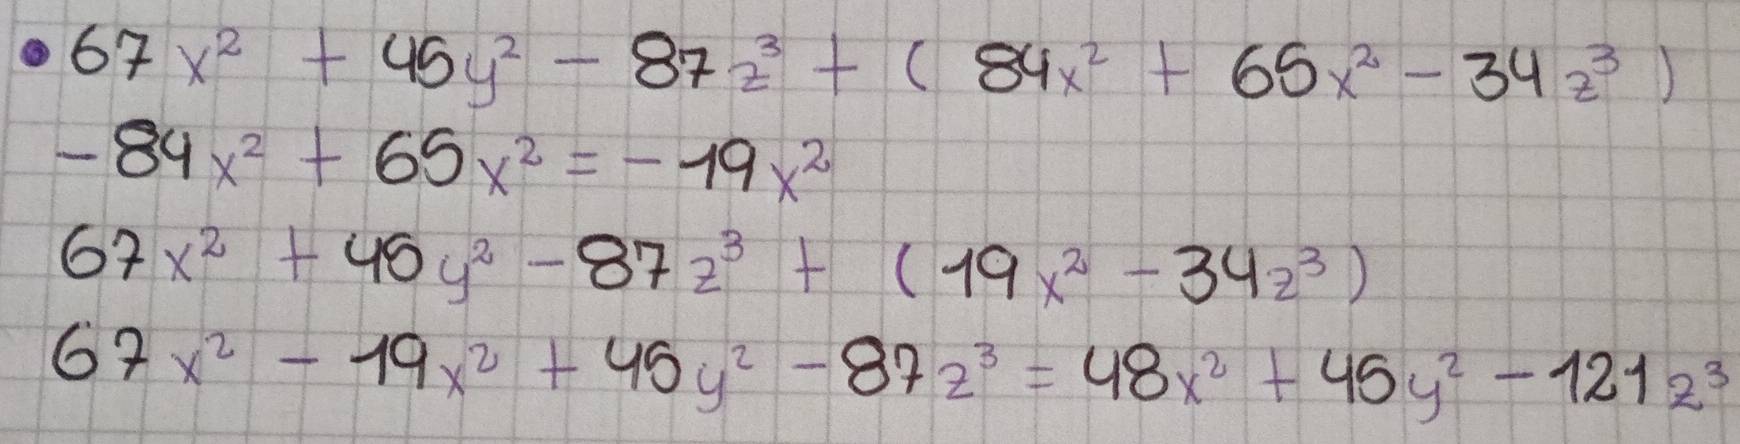 • 67x² + 45y² - 87z³ + (84x² + 65x² - 34z³)
- 84x² + 65x² = - 19x²
67x² + 45y² - 87z³ + (19x² - 34z³)
67x² - 19x² + 45y² - 87z³ = 48x² + 45y² - 121z³